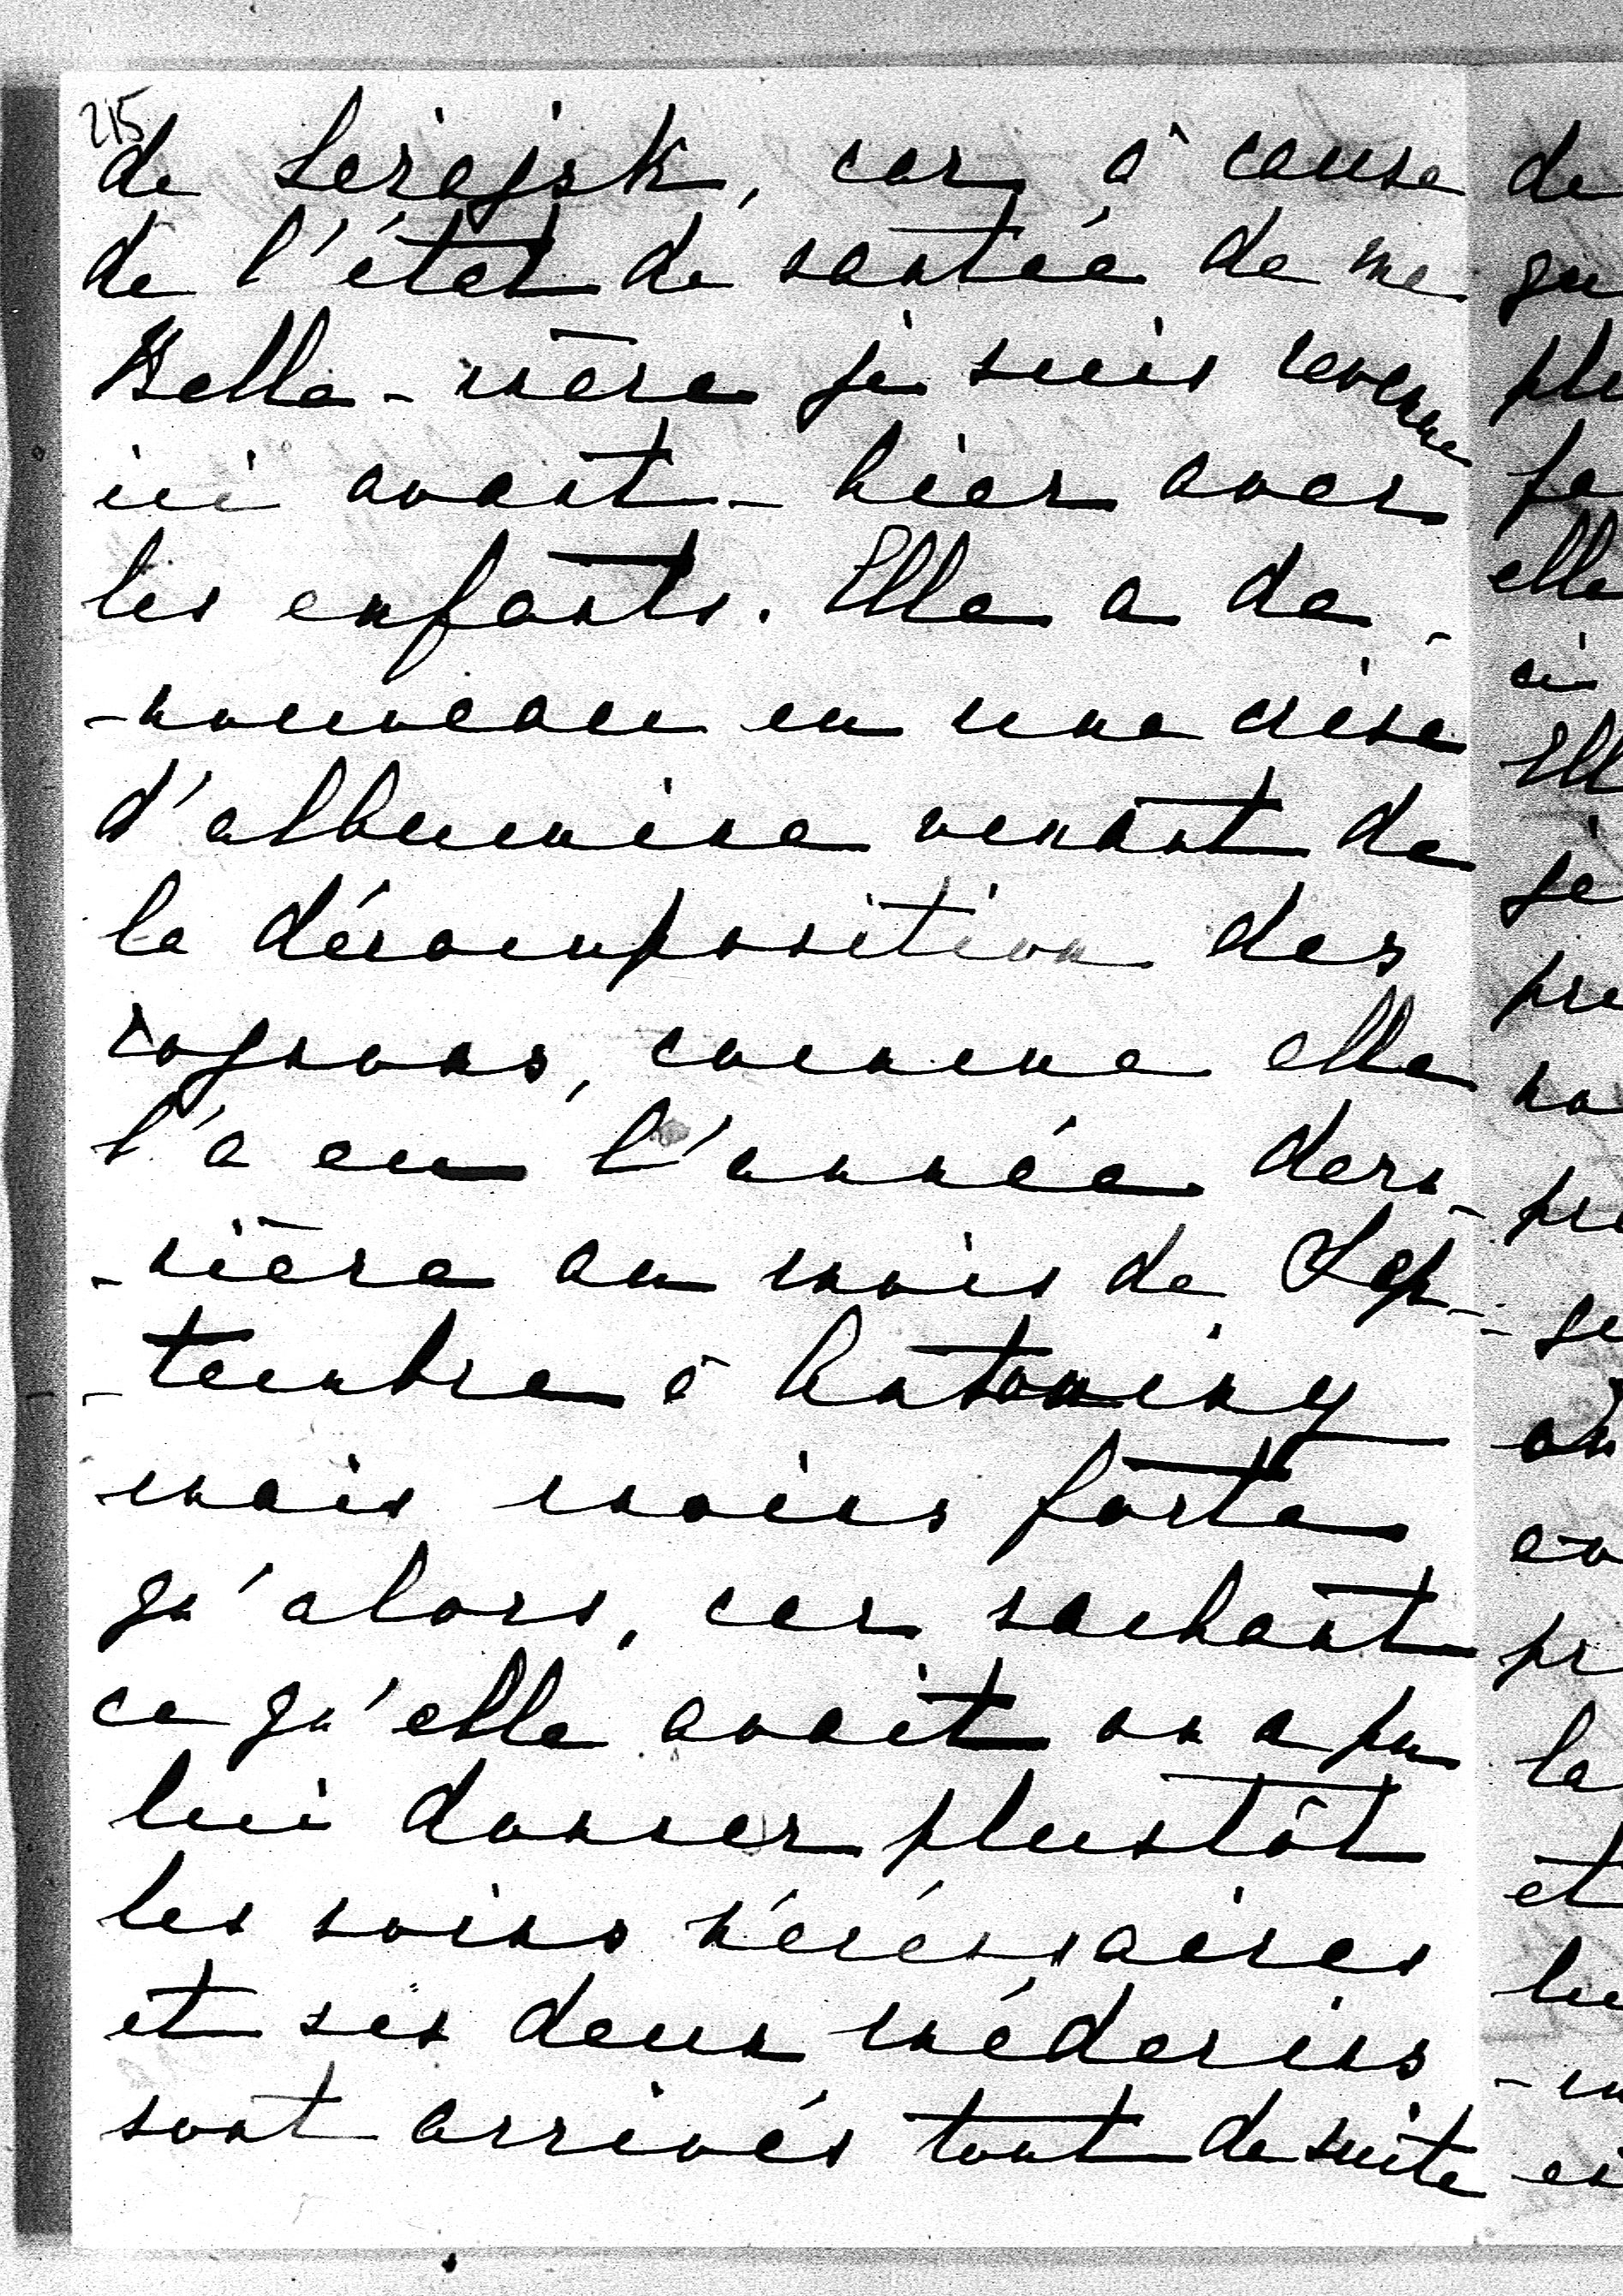 215
de Lezajsk, car à cause
de l'état de santée de ma
Belle-mère je suis revenue
ici avant-hier avec
les enfants. Elle a de-
-nouveau eu une crise
d'albumine venant de
la décomposition des
rognons, comme elle
l'a eu l'année der-
-nière au mois de Sep-
-tembre à Antoniny
mais moins forte
qu'alors, car sachant
ce qu'elle avait on a pu
lui donner plustôt
les soins nécéssaires
et ses deux médecins
sont arrivés tout de suite